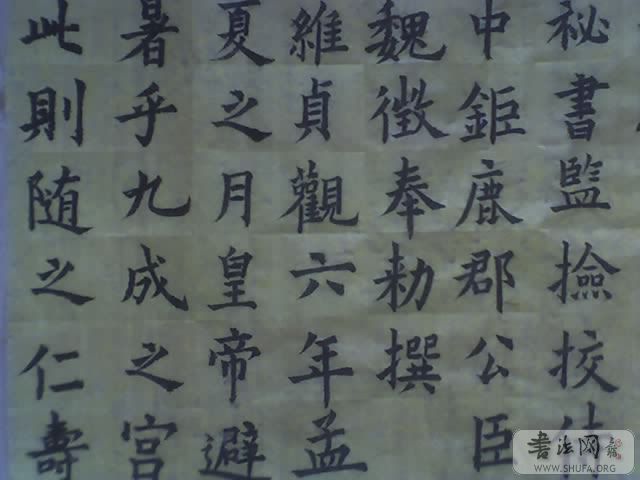 秘書監撿挍侍
中鉅鹿郡公臣
魏徵奉勑撰
維貞觀六年孟
夏之月皇帝避
暑乎九成之宫
此則随之仁壽
書法网
WWW.SHUFA.ORG